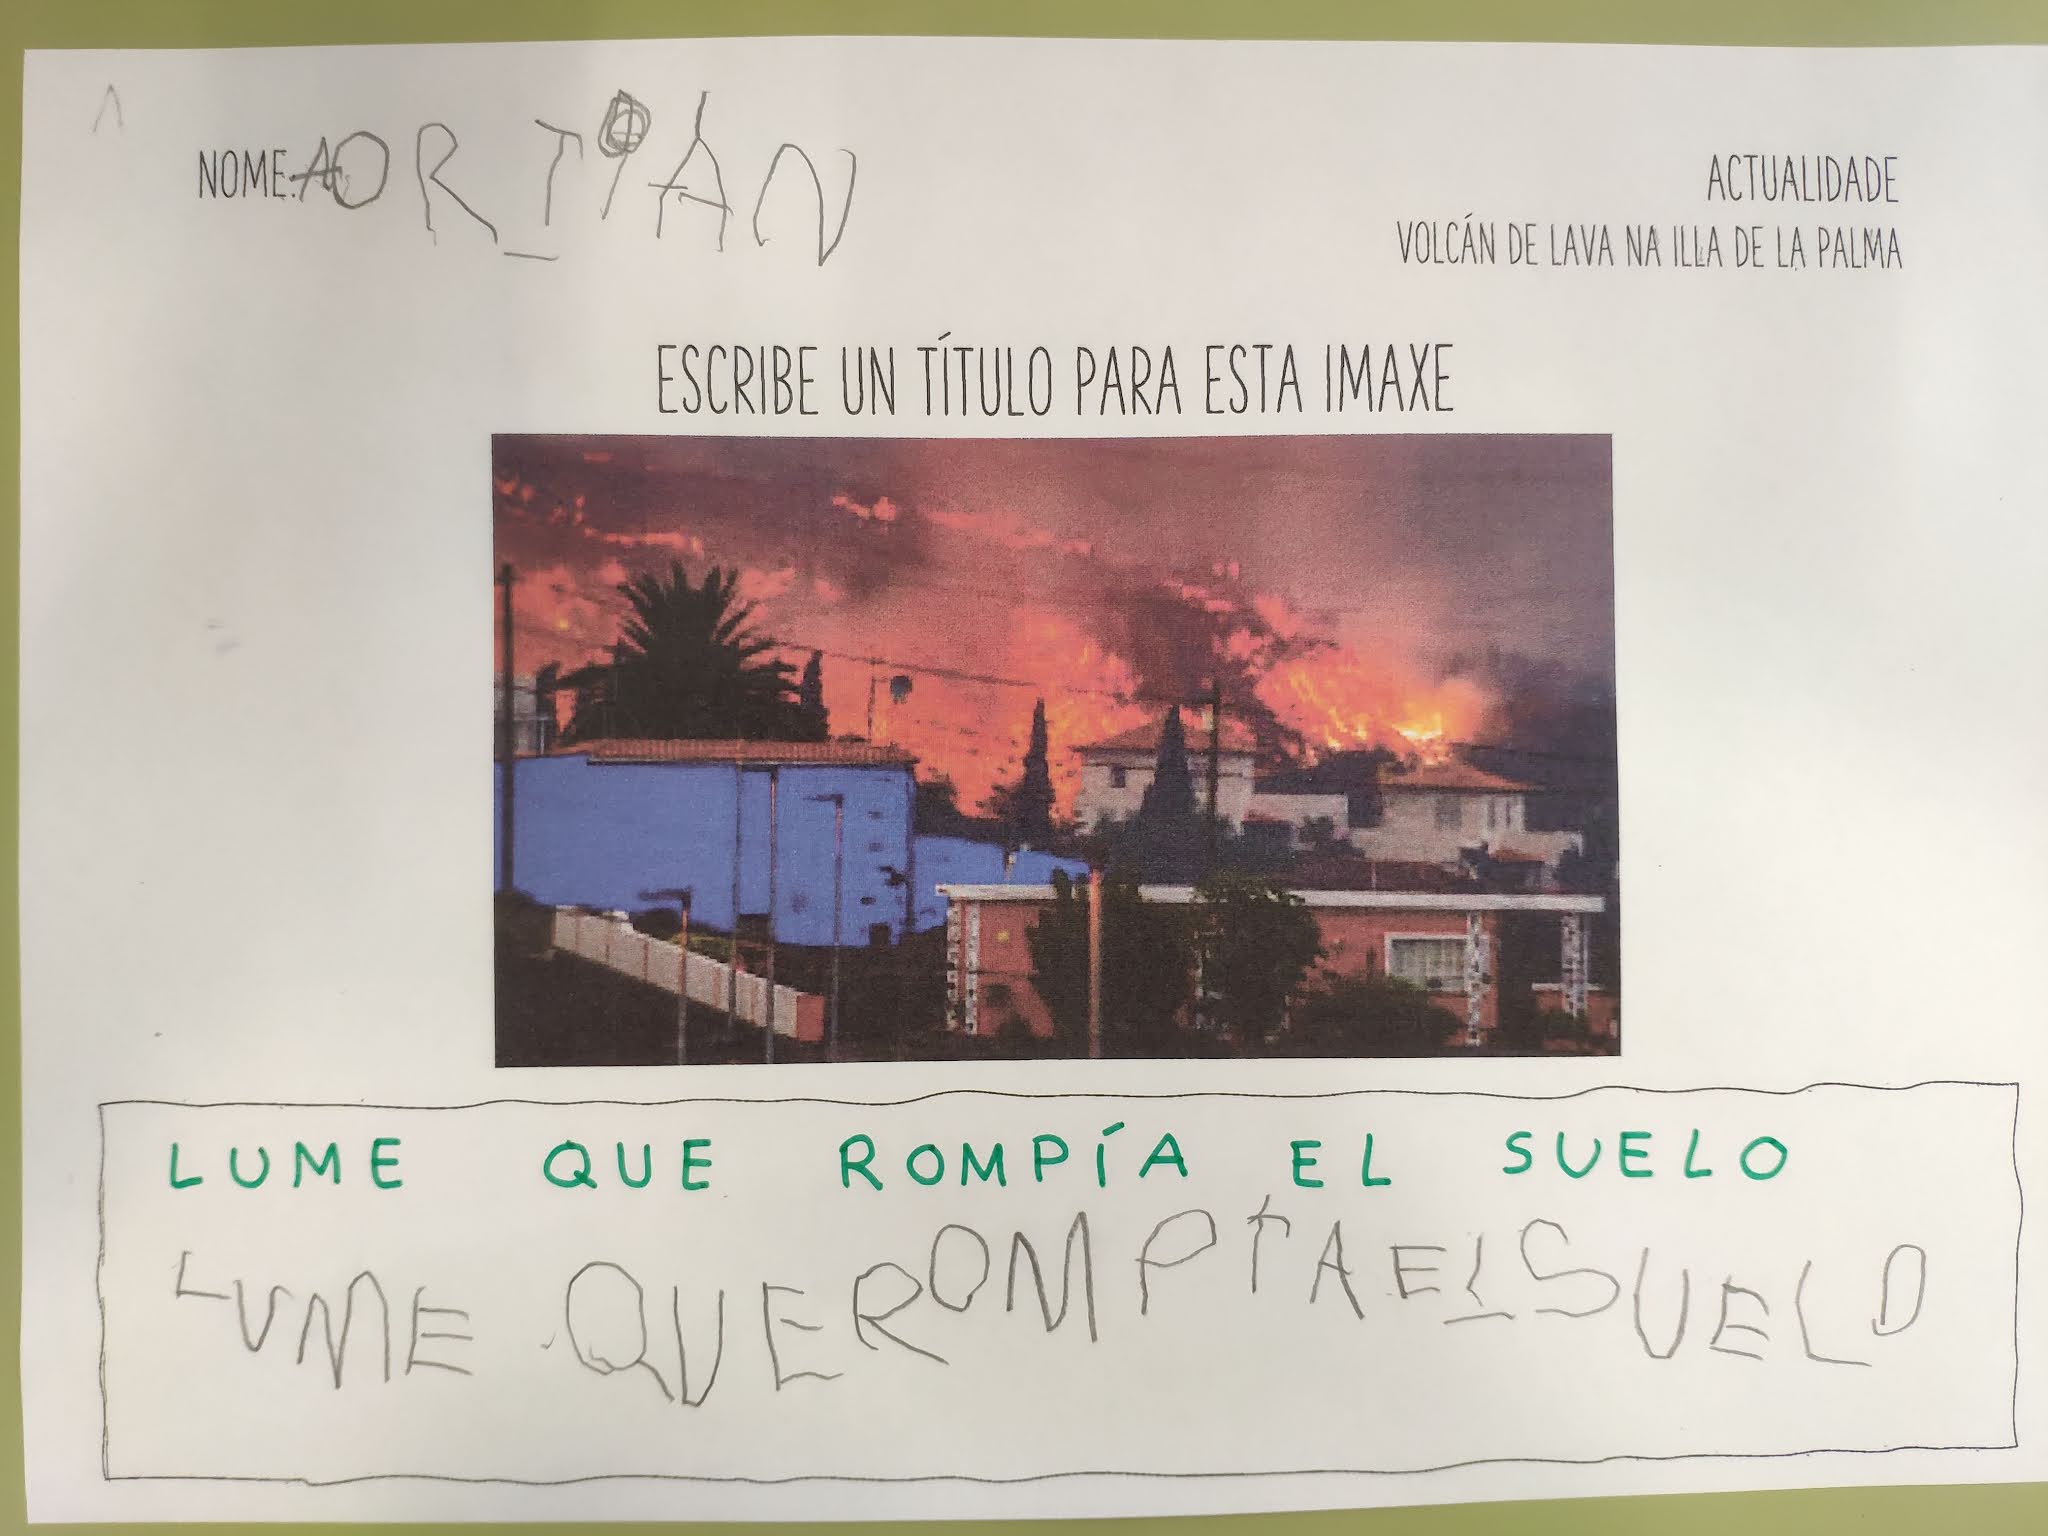 NOME: ADRIÁN
ACTUALIDADE
VOLCÁN DE LAVA NA ILLA DE LA PALMA
ESCRIBE UN TÍTULO PARA ESTA IMAXE
LUME QUE ROMPÍA EL SUELO
LUME QUE ROMPÍA EL SUELO